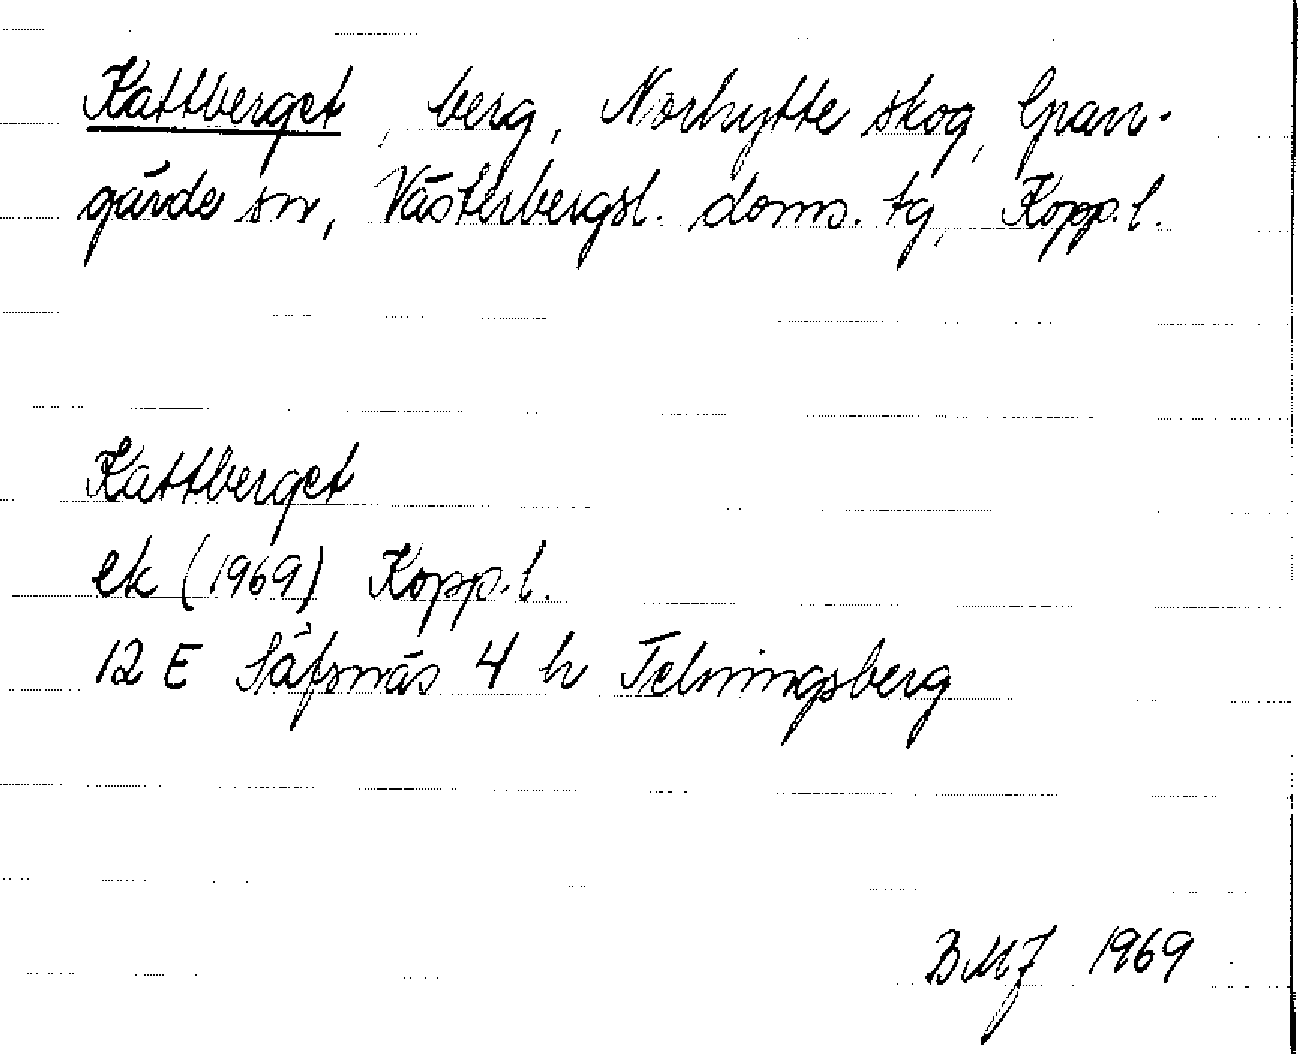 Kattberget, berg, Norhytte skog, Gran-
gärde sn, Västerbergsl. doms. tg, Kopp. l.
Kattberget
ek (1969) Kopp. l.
12 E Säfsnäs 4 h Telningsberg
BMJ 1969